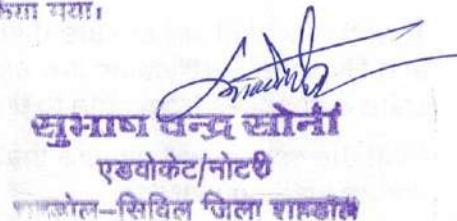 किया गया।
सुभाष चन्द्र सोनी
एडवोकेट/नोटरी
शहडोल-सिविल जिला शहडोल